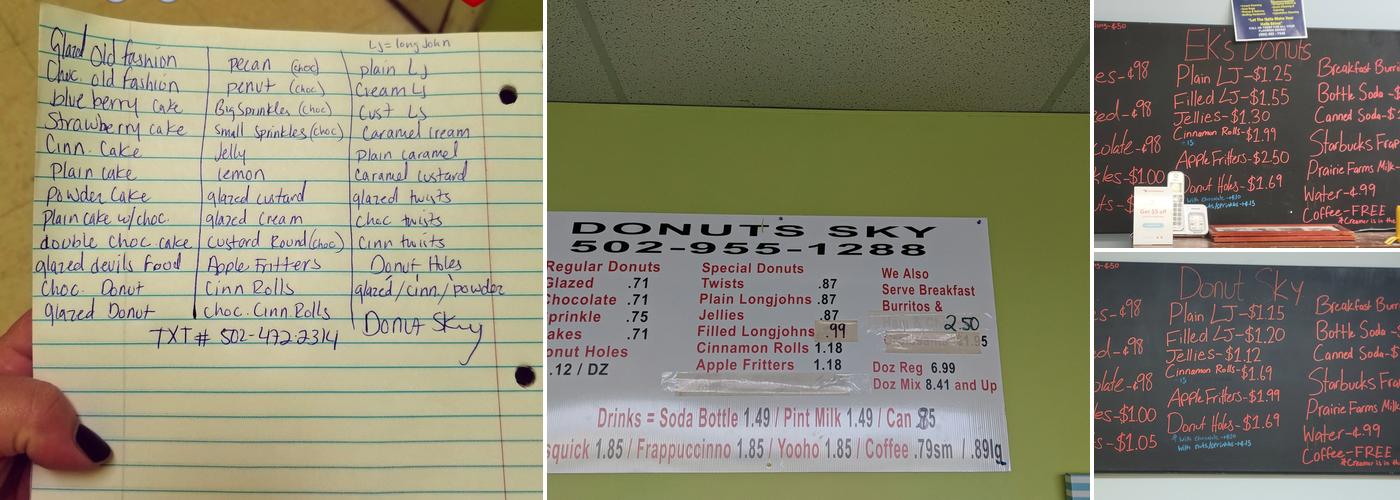 LJ = long John
Glazed Old fashion
Choc. old fashion
blueberry cake
Strawberry cake
Cinn. Cake
Plain cake
Powder Cake
Plain cake w/choc.
double choc cake
glazed devils food
Choc. Donut
glazed Donut
pecan (choc)
penut (choc)
Big Sprinkles (choc)
Small Sprinkles (choc)
Jelly
lemon
glazed custard
glazed cream
Custard Round (choc)
Apple Fritters
Cinn Rolls
choc. Cinn. Rolls
plain LJ
Cream LJ
Cust LJ
Caramel cream
Plain caramel
Caramel custard
glazed twists
choc twists
Cinn twists
Donut Holes
glazed/cinn/powder
TXT# 502-472-2314
Donut Sky
DONUTS SKY
502-955-1288
Regular Donuts
Glazed .71
Chocolate .71
prinkle .75
akes .71
onut Holes
.12 / DZ
Special Donuts
Twists .87
Plain Longjohns .87
Jellies .87
Filled Longjohns .99
Cinnamon Rolls 1.18
Apple Fritters 1.18
We Also
Serve Breakfast
Burritos &
2.50
Doz Reg 6.99
Doz Mix 8.41 and Up
Drinks = Soda Bottle 1.49 / Pint Milk 1.49 / Can .85
squick 1.85 / Frappuccinno 1.85 / Yooho 1.85 / Coffee .79sm / .89lg
"Let The Nails Make Your
EK's Donuts
es-¢98
ed-¢98
colate-¢98
kles-$1.00
uts-$
Plain LJ-$1.25
Filled LJ-$1.55
Jellies-$1.30
Cinnamon Rolls-$1.99
Apple Fritters-$2.50
Donut Holes-$1.69
Breakfast Burri
Bottle Soda-$
Canned Soda-$
Starbucks Frap
Prairie Farms Milk-
Water-¢.99
Coffee-FREE
*Creamer is in the
Get $5 off
Donut Sky
s-¢98
d-¢98
olate-¢98
es-$1.00
s-$1.05
Plain LJ-$1.15
Filled LJ-$1.20
Jellies-$1.12
Cinnamon Rolls-$1.69
Apple Fritters-$1.99
Donut Holes-$1.69
Breakfast Burr
Bottle Soda-
Canned Soda-$
Starbucks Fra
Prairie Farms Milk-
Water-¢.99
Coffee-FREE
*Creamer is in th